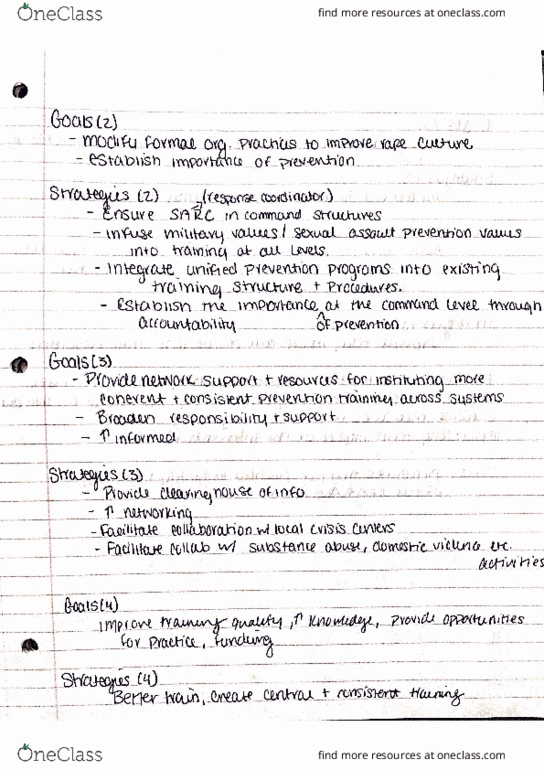 OneClass
find more resources at oneclass.com
Goals (2)
- modify formal org. practices to improve rape culture
- establish importance of prevention
Strategies (2) (response coordinator)
- Ensure SARC in command structures
- infuse military values / sexual assault prevention values
into training at all levels.
- Integrate unified prevention programs into existing
training structure + procedures.
- Establish the importance ^ at the command level through
accountability of prevention
Goals (3)
- Provide network support + resources for instituting more
coherent + consistent prevention training across systems
- Broaden responsibility + support
- ↑ informed
Strategies (3)
- Provide clearinghouse of info
- ↑ networking
- Facilitate collaboration w/ local crisis centers
- Facilitate collab w/ substance abuse, domestic violence etc.
activities
Goals (4)
improve training quality, ↑ knowledge, provide opportunities
for practice, funding
Strategies (4)
Better train, create central + consistent training
OneClass
find more resources at oneclass.com